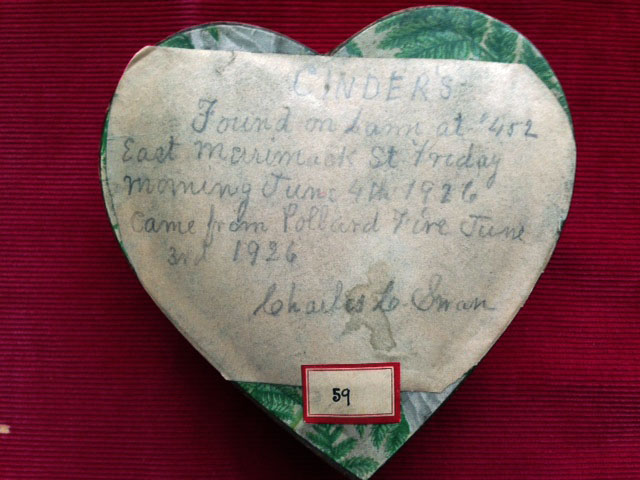 CINDERS
Found on Lawn at 452
East Merrimack St Friday
morning June 4th 1926
Came from Pollard Fire June
3rd 1926
Charles C Swan
59